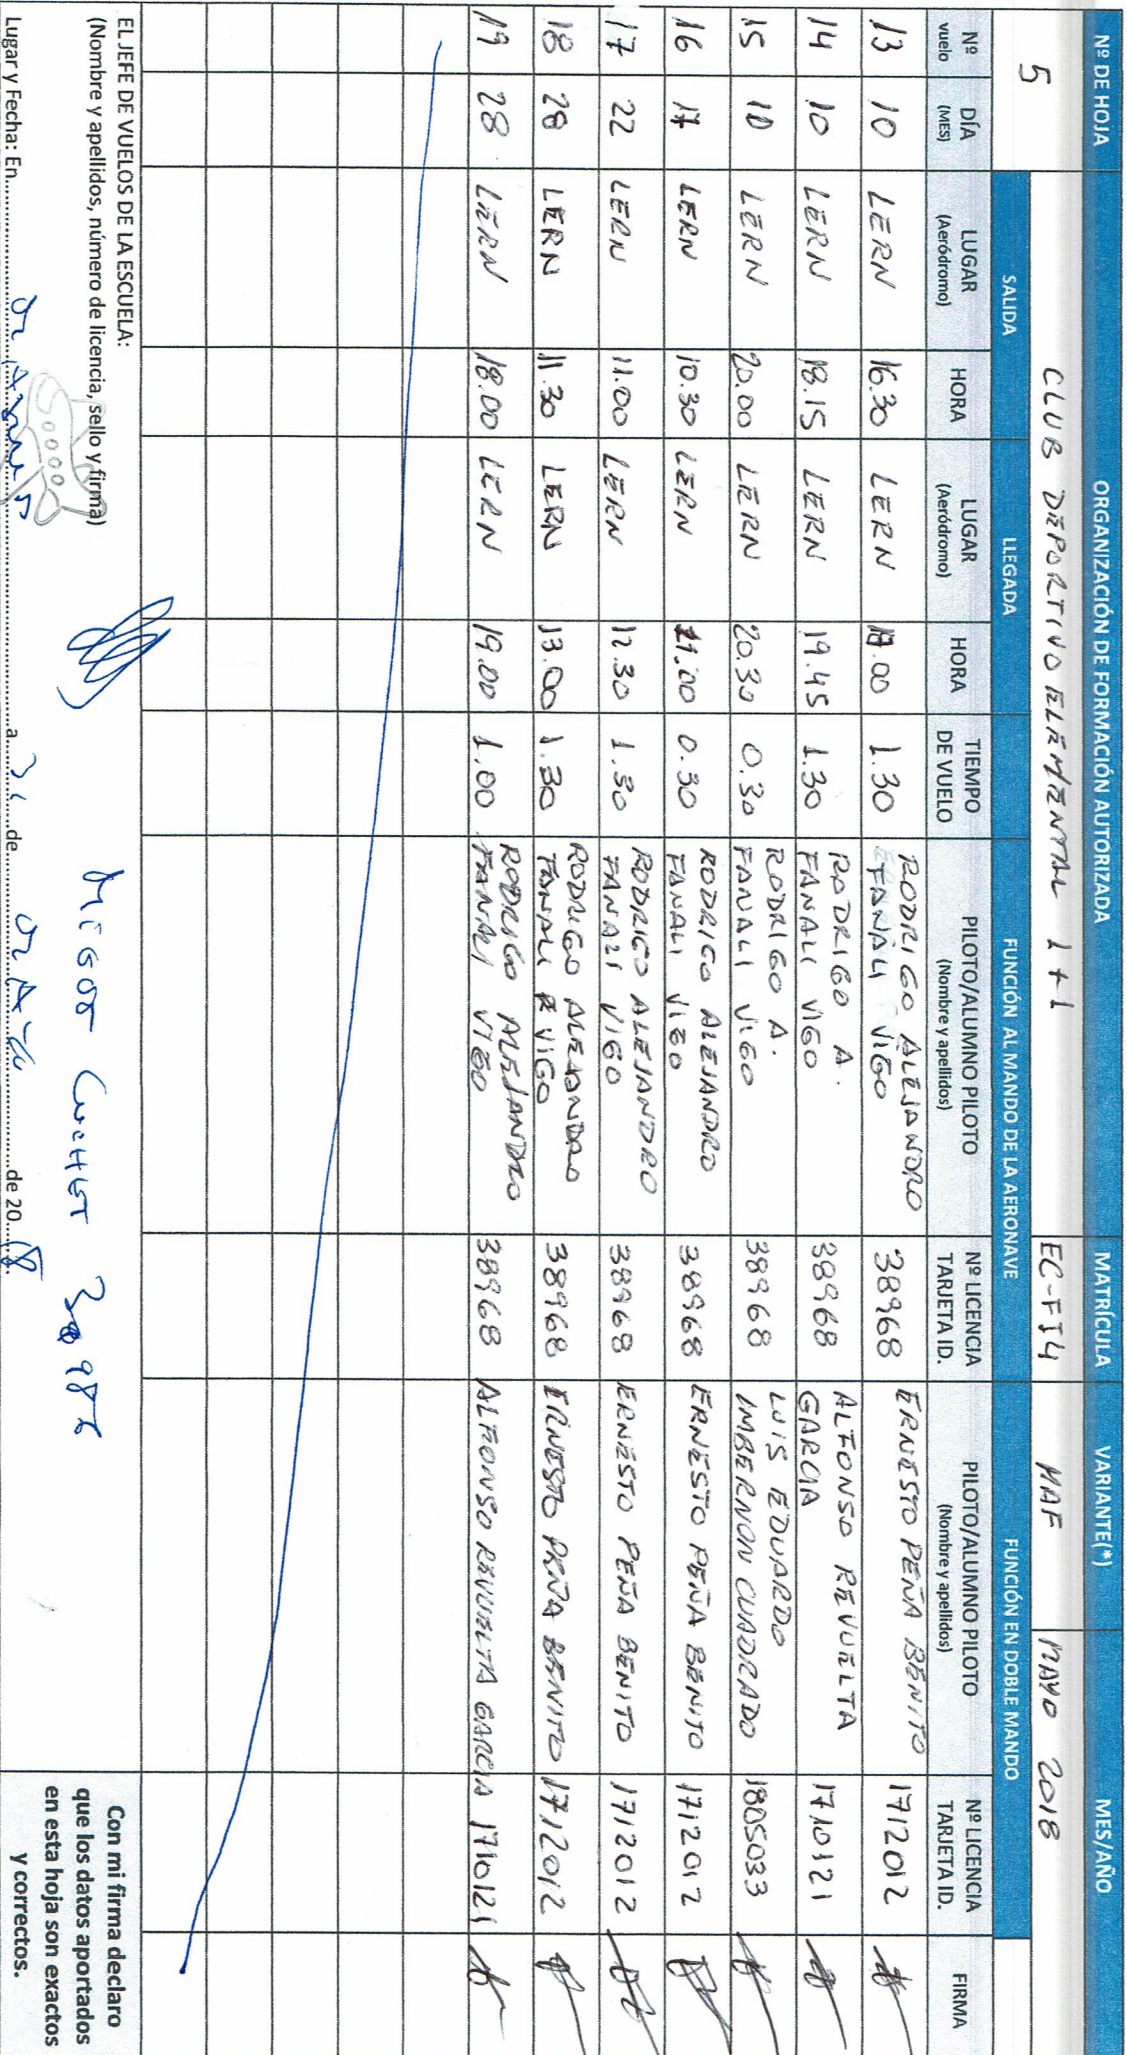 Nº DE HOJA ORGANIZACIÓN DE FORMACIÓN AUTORIZADA MATRÍCULA VARIANTE(*) MES/AÑO
5 CLUB DEPORTIVO ELEMENTAL 1+1 EC-FI4 MAF MAYO 2018
SALIDA LLEGADA FUNCIÓN AL MANDO DE LA AERONAVE FUNCIÓN EN DOBLE MANDO
Nº vuelo DÍA (MES) LUGAR (Aeródromo) HORA LUGAR (Aeródromo) HORA TIEMPO DE VUELO PILOTO/ALUMNO PILOTO (Nombre y apellidos) Nº LICENCIA TARJETA ID. PILOTO/ALUMNO PILOTO (Nombre y apellidos) Nº LICENCIA TARJETA ID. FIRMA
13 10 LERN 16.30 LERN .00 1.30 RODRIGO ALEJANDRO FANALI VIGO 38968 ERNESTO PEÑA BENITO 1712012
14 10 LERN 18.15 LERN 19.45 1.30 RODRIGO A. FANALI VIGO 38968 ALFONSO REVUELTA GARCIA 1710121
15 10 LERN 20.00 LERN 20.30 0.30 RODRIGO A. FANALI VIGO 38968 LUIS EDUARDO IMBERNON CUADRADO 1805033
16 17 LERN 10.30 LERN 11.00 0.30 RODRIGO ALEJANDRO FANALI VIGO 38968 ERNESTO PEÑA BENITO 1712012
17 22 LERN 11.00 LERN 12.30 1.30 RODRIGO ALEJANDRO FANALI VIGO 38968 ERNESTO PEÑA BENITO 1712012
18 28 LERN 11.30 LERN 13.00 1.30 RODRIGO ALEJANDRO FANALI VIGO 38968 ERNESTO PEÑA BENITO 1712012
19 28 LERN 18.00 LERN 19.00 1.00 RODRIGO ALEJANDRO FANALI VIGO 38968 ALFONSO REVUELTA GARCIA 1710121
EL JEFE DE VUELOS DE LA ESCUELA:
(Nombre y apellidos, número de licencia, sello y firma)
Lugar y Fecha: En a 31 de de 20 18
Con mi firma declaro
que los datos aportados
en esta hoja son exactos
y correctos.